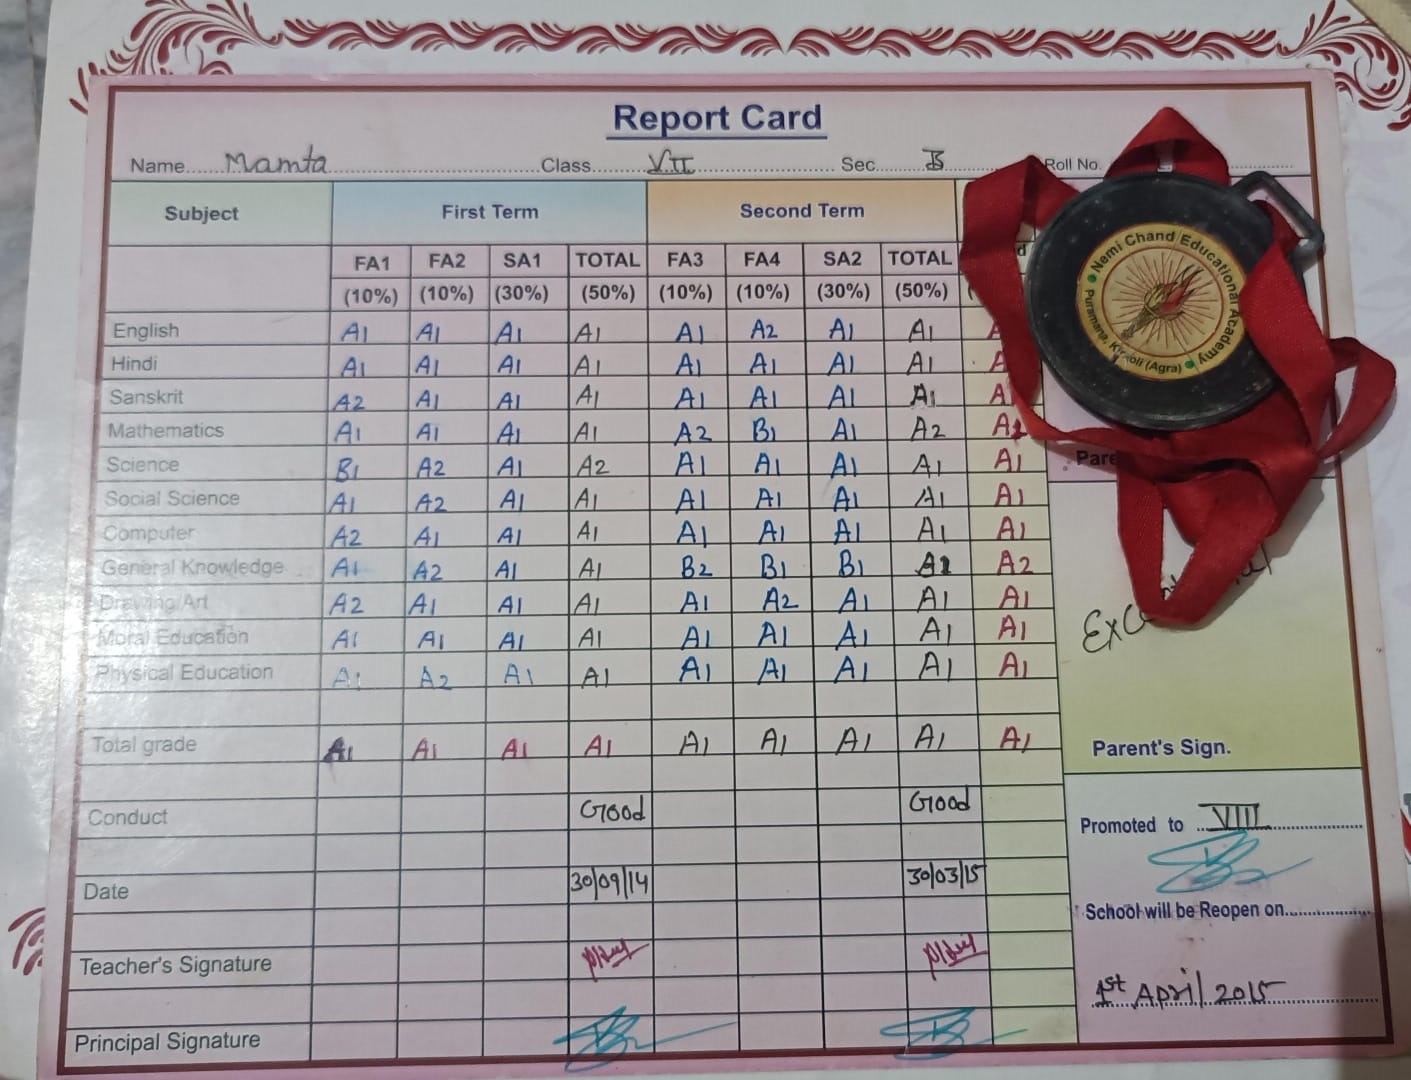 Report Card
Name Mamta Class VII Sec B Roll No.
Subject First Term Second Term
FA1 FA2 SA1 TOTAL FA3 FA4 SA2 TOTAL
(10%) (10%) (30%) (50%) (10%) (10%) (30%) (50%)
English A1 A1 A1 A1 A1 A2 A1 A1
Hindi A1 A1 A1 A1 A1 A1 A1 A1
Sanskrit A2 A1 A1 A1 A1 A1 A1 A1
Mathematics A1 A1 A1 A1 A2 B1 A1 A2
Science B1 A2 A1 A2 A1 A1 A1 A1 A1
Social Science A1 A2 A1 A1 A1 A1 A1 A1 A1
Computer A2 A1 A1 A1 A1 A1 A1 A1 A1
General Knowledge A1 A2 A1 A1 B2 B1 B1 A2
Drawing/Art A2 A1 A1 A1 A1 A2 A1 A1 A1
Moral Education A1 A1 A1 A1 A1 A1 A1 A1 A1
Physical Education A1 A2 A1 A1 A1 A1 A1 A1 A1
Total grade A1 A1 A1 A1 A1 A1 A1 A1 A1
Conduct Good Good
Date 30/09/14 30/03/15
Teacher's Signature
Principal Signature
Nemi Chand Educational Academy
Puramana, Kiraoli (Agra)
Parent's Sign.
Promoted to VIII
School will be Reopen on
1st April 2015